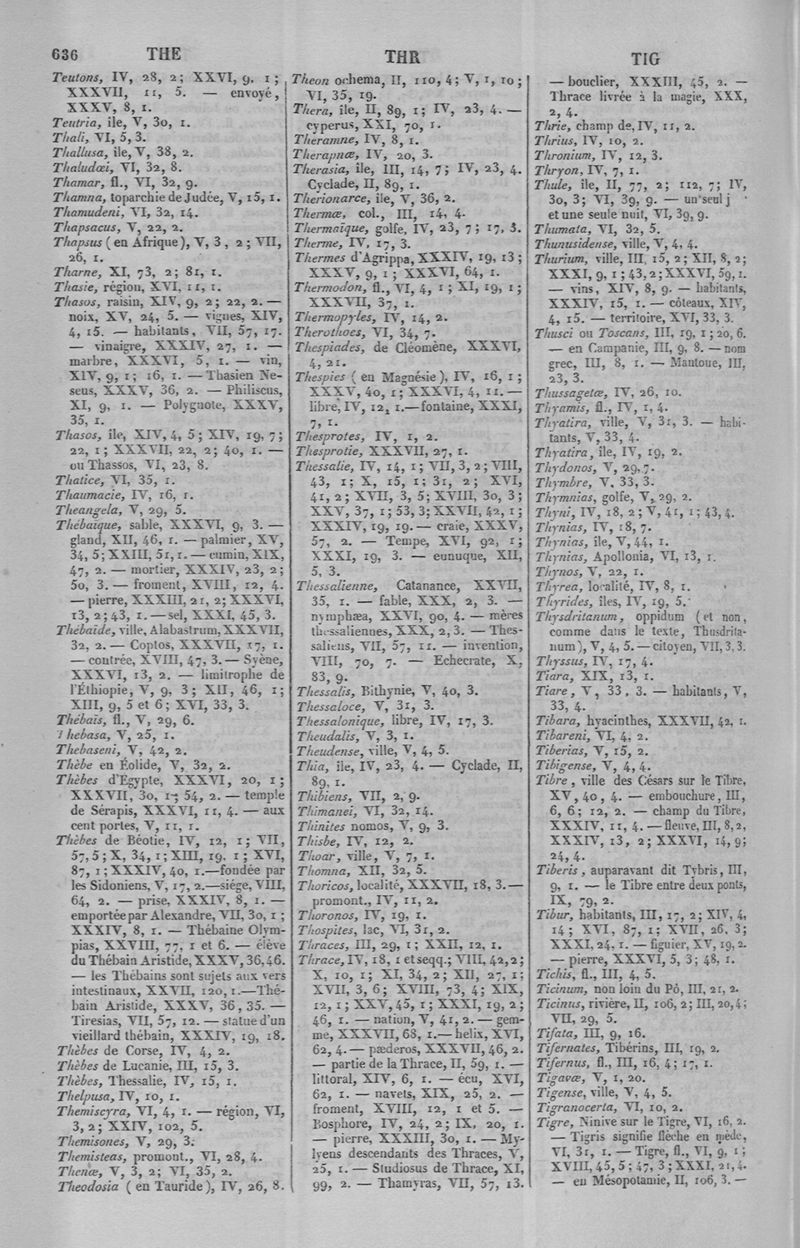 636
THE
THR
TIG
Teutons, IV, 28, 2; XXVI, 9, 1;
XXXVII, 11, 5. — envoyé,
XXXV, 8, 1.
Teutria, ile, V, 30, 1.
Thali, VI, 5, 3.
Thallusa, ile, V, 38, 2.
Thaludæi, VI, 32, 8.
Thamar, fl., VI, 32, 9.
Thamna, toparchie de Judée, V, 15, 1.
Thamudeni, VI, 32, 14.
Thapsacus, V, 22, 2.
Thapsus (en Afrique), V, 3, 2; VII,
26, 1.
Tharne, XI, 73, 2; 81, 1.
Thasie, région, XVI, 11, 1.
Thasos, raisin, XIV, 9, 2; 22, 2. —
noix, XV, 24, 5. — vignes, XIV,
4, 15. — habitants, VII, 57, 17.
— vinaigre, XXXIV, 27, 1. —
marbre, XXXVI, 5, 1. — vin,
XIV, 9, 1; 16, 1. — Thasien Ne-
seus, XXXV, 36, 2. — Philiscus,
XI, 9, 1. — Polygnote, XXXV,
35, 1.
Thasos, ile, XIV, 4, 5; XIV, 19, 7;
22, 1; XXXVII, 22, 2; 40, 1. —
ou Thassos, VI, 23, 8.
Thatice, VI, 35, 1.
Thaumacie, IV, 16, 1.
Theangela, V, 29, 5.
Thébaïque, sable, XXXVI, 9, 3. —
gland, XII, 46, 1. — palmier, XV,
34, 5; XXIII, 51, 1. — cumin, XIX,
47, 2. — mortier, XXXIV, 23, 2;
50, 3. — froment, XVIII, 12, 4.
— pierre, XXXIII, 21, 2; XXXVI,
13, 2; 43, 1. — sel, XXXI, 45, 3.
Thébaïde, ville, Alabastrum, XXXVII,
32, 2. — Coptos, XXXVII, 17, 1.
— contrée, XVIII, 47, 3. — Syène,
XXXVI, 13, 2. — limitrophe de
l'Éthiopie, V, 9, 3; XII, 46, 1;
XIII, 9, 5 et 6; XVI, 33, 3.
Thébaïs, fl., V, 29, 6.
Thebasa, V, 25, 1.
Thebaseni, V, 42, 2.
Thèbe en Éolide, V, 32, 2.
Thèbes d'Égypte, XXXVI, 20, 1;
XXXVII, 30, 1; 54, 2. — temple
de Sérapis, XXXVI, 11, 4. — aux
cent portes, V, 11, 1.
Thèbes de Béotie, IV, 12, 1; VII,
57, 5; X, 34, 1; XIII, 19, 1; XVI,
87, 1; XXXIV, 40, 1.—fondée par
les Sidoniens, V, 17, 2.—siége, VIII,
64, 2. — prise, XXXIV, 8, 1. —
emportée par Alexandre, VII, 30, 1;
XXXIV, 8, 1. — Thébaine Olym-
pias, XXVIII, 77, 1 et 6. — élève
du Thébain Aristide, XXXV, 36, 46.
— les Thébains sont sujets aux vers
intestinaux, XXVII, 120, 1.—Thé-
bain Aristide, XXXV, 36, 35. —
Tiresias, VII, 57, 12. — statue d'un
vieillard thébain, XXXIV, 19, 18.
Thèbes de Corse, IV, 4, 2.
Thèbes de Lucanie, III, 15, 3.
Thèbes, Thessalie, IV, 15, 1.
Thelpusa, IV, 10, 1.
Themiscyra, VI, 4, 1. — région, VI,
3, 2; XXIV, 102, 5.
Themisones, V, 29, 3.
Themisteas, promont., VI, 28, 4.
Thenæ, V, 3, 2; VI, 35, 2.
Theodosia (en Tauride), IV, 26, 8.
Theon ochema, II, 110, 4; V, 1, 10;
VI, 35, 19.
Thera, ile, II, 89, 1; IV, 23, 4. —
cyperus, XXI, 70, 1.
Theramne, IV, 8, 1.
Therapnæ, IV, 20, 3.
Therasia, ile, III, 14, 7; IV, 23, 4.
Cyclade, II, 89, 1.
Therionarce, ile, V, 36, 2.
Thermæ, col., III, 14, 4.
Thermaïque, golfe, IV, 23, 7; 17, 3.
Therme, IV, 17, 3.
Thermes d'Agrippa, XXXIV, 19, 13;
XXXV, 9, 1; XXXVI, 64, 1.
Thermodon, fl., VI, 4, 1; XI, 19, 1;
XXXVII, 37, 1.
Thermopyles, IV, 14, 2.
Therothoes, VI, 34, 7.
Thespiades, de Cléomène, XXXVI,
4, 21.
Thespies (en Magnésie), IV, 16, 1;
XXXV, 40, 1; XXXVI, 4, 11. —
libre, IV, 12, 1.—fontaine, XXXI,
7, 1.
Thesprotes, IV, 1, 2.
Thesprotie, XXXVII, 27, 1.
Thessalie, IV, 14, 1; VII, 3, 2; VIII,
43, 1; X, 15, 1; 31, 2; XVI,
41, 2; XVII, 3, 5; XVIII, 30, 3;
XXV, 37, 1; 53, 3; XXVII, 42, 1;
XXXIV, 19, 19.— craie, XXXV,
57, 2. — Tempe, XVI, 92, 1;
XXXI, 19, 3. — eunuque, XII,
5, 3.
Thessalienne, Catanance, XXVII,
35, 1. — fable, XXX, 2, 3. —
nymphæa, XXVI, 90, 4. — mères
thessaliennes, XXX, 2, 3. — Thes-
saliens, VII, 57, 11. — invention,
VIII, 70, 7. — Echecrate, X,
83, 9.
Thessalis, Bithynie, V, 40, 3.
Thessaloce, V, 31, 3.
Thessalonique, libre, IV, 17, 3.
Theudalis, V, 3, 1.
Theudense, ville, V, 4, 5.
Thia, ile, IV, 23, 4. — Cyclade, II,
89, 1.
Thibiens, VII, 2, 9.
Thimanei, VI, 32, 14.
Thinites nomos, V, 9, 3.
Thisbe, IV, 12, 2.
Thoar, ville, V, 7, 1.
Thomna, XII, 32, 5.
Thoricos, localité, XXXVII, 18, 3.—
promont., IV, 11, 2.
Thoronos, IV, 19, 1.
Thospites, lac, VI, 31, 2.
Thraces, III, 29, 1; XXII, 12, 1.
Thrace, IV, 18, 1 et seqq.; VIII, 42, 2;
X, 10, 1; XI, 34, 2; XII, 27, 1;
XVII, 3, 6; XVIII, 73, 4; XIX,
12, 1; XXV, 45, 1; XXXI, 19, 2;
46, 1. — nation, V, 41, 2. — gem-
me, XXXVII, 68, 1.— helix, XVI,
62, 4.— pæderos, XXXVII, 46, 2.
— partie de la Thrace, II, 59, 1. —
littoral, XIV, 6, 1. — écu, XVI,
62, 1. — navets, XIX, 25, 2. —
froment, XVIII, 12, 1 et 5. —
Bosphore, IV, 24, 2; IX, 20, 1.
— pierre, XXXIII, 30, 1. — My-
lyens descendants des Thraces, V,
25, 1. — Studiosus de Thrace, XI,
99, 2. — Thamyras, VII, 57, 13.
— bouclier, XXXIII, 45, 2. —
Thrace livrée à la magie, XXX,
2, 4.
Thrie, champ de, IV, 11, 2.
Thrius, IV, 10, 2.
Thronium, IV, 12, 3.
Thryon, IV, 7, 1.
Thule, ile, II, 77, 2; 112, 7; IV,
30, 3; VI, 39, 9. — un seul j
et une seule nuit, VI, 39, 9.
Thumata, VI, 32, 5.
Thunusidense, ville, V, 4, 4.
Thurium, ville, III, 15, 2; XII, 8, 2;
XXXI, 9, 1; 43, 2; XXXVI, 59, 1.
— vins, XIV, 8, 9. — habitants,
XXXIV, 15, 1. — côteaux, XIV,
4, 15. — territoire, XVI, 33, 3.
Thusci ou Toscans, III, 19, 1; 20, 6.
— en Campanie, III, 9, 8. — nom
grec, III, 8, 1. — Mantoue, III,
23, 3.
Thussagetæ, IV, 26, 10.
Thyamis, fl., IV, 1, 4.
Thyatira, ville, V, 31, 3. — habi-
tants, V, 33, 4.
Thyatira, ile, IV, 19, 2.
Thydonos, V, 29, 7.
Thymbre, V, 33, 3.
Thymnias, golfe, V, 29, 2.
Thyni, IV, 18, 2; V, 41, 1; 43, 4.
Thynias, IV, 18, 7.
Thynias, ile, V, 44, 1.
Thynias, Apollonia, VI, 13, 1.
Thynos, V, 22, 1.
Thyrea, localité, IV, 8, 1.
Thyrides, îles, IV, 19, 5.
Thysdritanum, oppidum (et non,
comme dans le texte, Thusdrita-
num), V, 4, 5. — citoyen, VII, 3, 3.
Thyssus, IV, 17, 4.
Tiara, XIX, 13, 1.
Tiare, V, 33, 3. — habitants, V,
33, 4.
Tibara, hyacinthes, XXXVII, 42, 1.
Tibareni, VI, 4, 2.
Tiberias, V, 15, 2.
Tibigense, V, 4, 4.
Tibre, ville des Césars sur le Tibre,
XV, 40, 4. — embouchure, III,
6, 6; 12, 2. — champ du Tibre,
XXXIV, 11, 4. — fleuve, III, 8, 2,
XXXIV, 13, 2; XXXVI, 14, 9;
24, 4.
Tiberis, auparavant dit Tybris, III,
9, 1. — le Tibre entre deux ponts,
IX, 79, 2.
Tibur, habitants, III, 17, 2; XIV, 4,
14; XVI, 87, 1; XVII, 26, 3;
XXXI, 24, 1. — figuier, XV, 19, 2.
— pierre, XXXVI, 5, 3; 48, 1.
Tichis, fl., III, 4, 5.
Ticinum, non loin du Pô, III, 21, 2.
Ticinus, rivière, II, 106, 2; III, 20, 4;
VII, 29, 5.
Tifata, III, 9, 16.
Tifernates, Tibérins, III, 19, 2.
Tifernus, fl., III, 16, 4; 17, 1.
Tigavæ, V, 1, 20.
Tigense, ville, V, 4, 5.
Tigranocerta, VI, 10, 2.
Tigre, Ninive sur le Tigre, VI, 16, 2.
— Tigris signifie flèche en mède,
VI, 31, 1. — Tigre, fl., VI, 9, 1;
XVIII, 45, 5; 47, 3; XXXI, 21, 4.
— en Mésopotamie, II, 106, 3. —